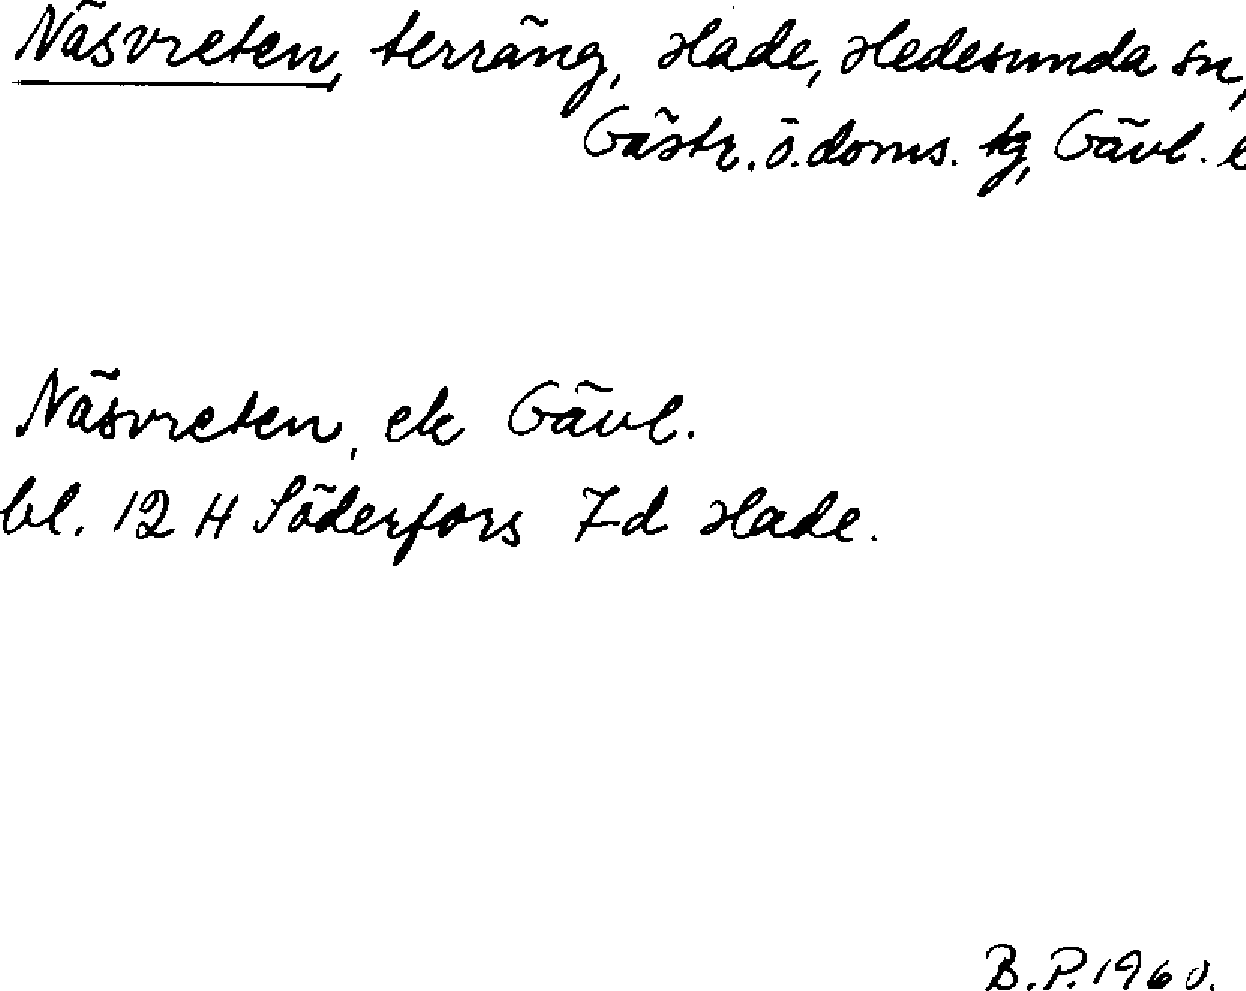 Näsvreten, terräng, Hade, Hedesunda sn,
Gästr. ö. doms. tg, Gävl. l
Näsvreten, ek Gävl.
bl. 12 H Söderfors 7d Hade.
B.P. 1960.